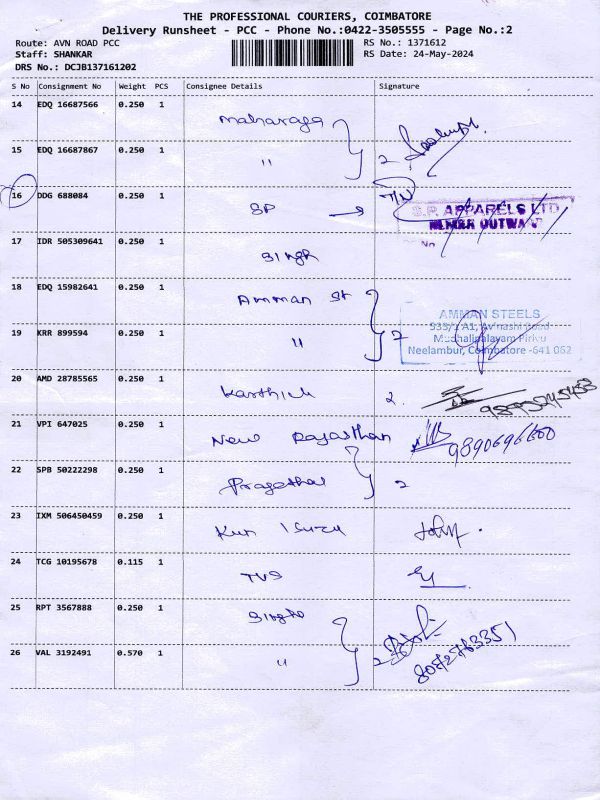 THE PROFESSIONAL COURIERS, COIMBATORE
Delivery Runsheet - PCC - Phone No.:0422-3505555 - Page No.:2
Route: AVN ROAD PCC
RS No.: 1371612
Staff: SHANKAR
RS Date: 24-May-2024
DRS No.: DCJB137161202
S No Consignment No Weight PCS Consignee Details Signature
14 EDQ 16687566 0.250 1 Maharaja
15 EDQ 16687867 0.250 1 " 2
16 DDG 688084 0.250 1 SP
S.P. APPARELS LTD
No
17 IDR 505309641 0.250 1 Singh
18 EDQ 15982641 0.250 1 Amman St
AMMAN STEELS
19 KRR 899594 0.250 1 " 2
533/1 A1, Avinashi Road
Muthalipalayam Pirivu
Neelambur, Coimbatore -641 062
20 AMD 28785565 0.250 1 Karthick 2.
21 VPI 647025 0.250 1 New Rajasthan 9890696600
22 SPB 50222298 0.250 1 2
23 IXM 506450459 0.250 1 Kun Isuzu
24 TCG 10195678 0.115 1 TVS
25 RPT 3567888 0.250 1
26 VAL 3192491 0.570 1 " 2 8072763351